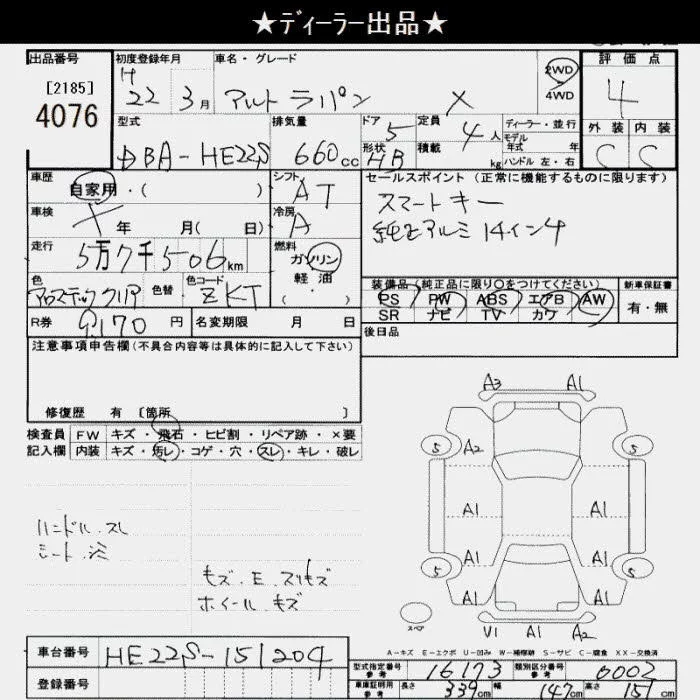 ★ディーラー出品★
出品番号 初度登録年月 車名・グレード 2WD 評価点
[2185] H 4WD 4
4076 22 3月 アルト ラパン X 外装 内装
型式 排気量 ドア 5 定員 4人 ディーラー・並行 C C
モデル
DBA-HE22S 660cc 形状 HB 積載 kg 年式 年
ハンドル 左・右
車歴 シフト セールスポイント (正常に機能するものに限ります)
自家用・( ) AT スマートキー
車検 年 月( 日) 冷房 A 純正アルミ 14インチ
走行 5万7千506km 燃料 ガソリン
軽油
( )
色 色替 色コード ZKT 装備品(純正品に限り○をつけてください) 新車保証書
PS PW ABS エアB AW 有・無
SR ナビ TV カワ
R券 9,170円 名変期限 月 日 後日品
注意事項申告欄(不具合内容等は具体的に記入して下さい)
修復歴 有 [箇所 ]
検査員 FW キズ・飛石・ヒビ割・リペア跡・×要
記入欄 内装 キズ・汚レ・コゲ・穴・スレ・キレ・破レ
ハンドル.スレ
シート.
キズ.E.スリキズ
ホイール.キズ
A3 A1
5 A2 5
A1 A1
A1 A1
5 5
A1 A1
スペア V1 A1 A2
A-キズ E-エクボ U-凹み W-補修跡 S-サビ C-腐食 XX-交換済
車台番号 HE22S-151204 型式指定番号 参考 16173 類別区分番号 参考 0002
登録番号 車庫証明用 参考 長さ 339cm 幅 147cm 高さ 151cm